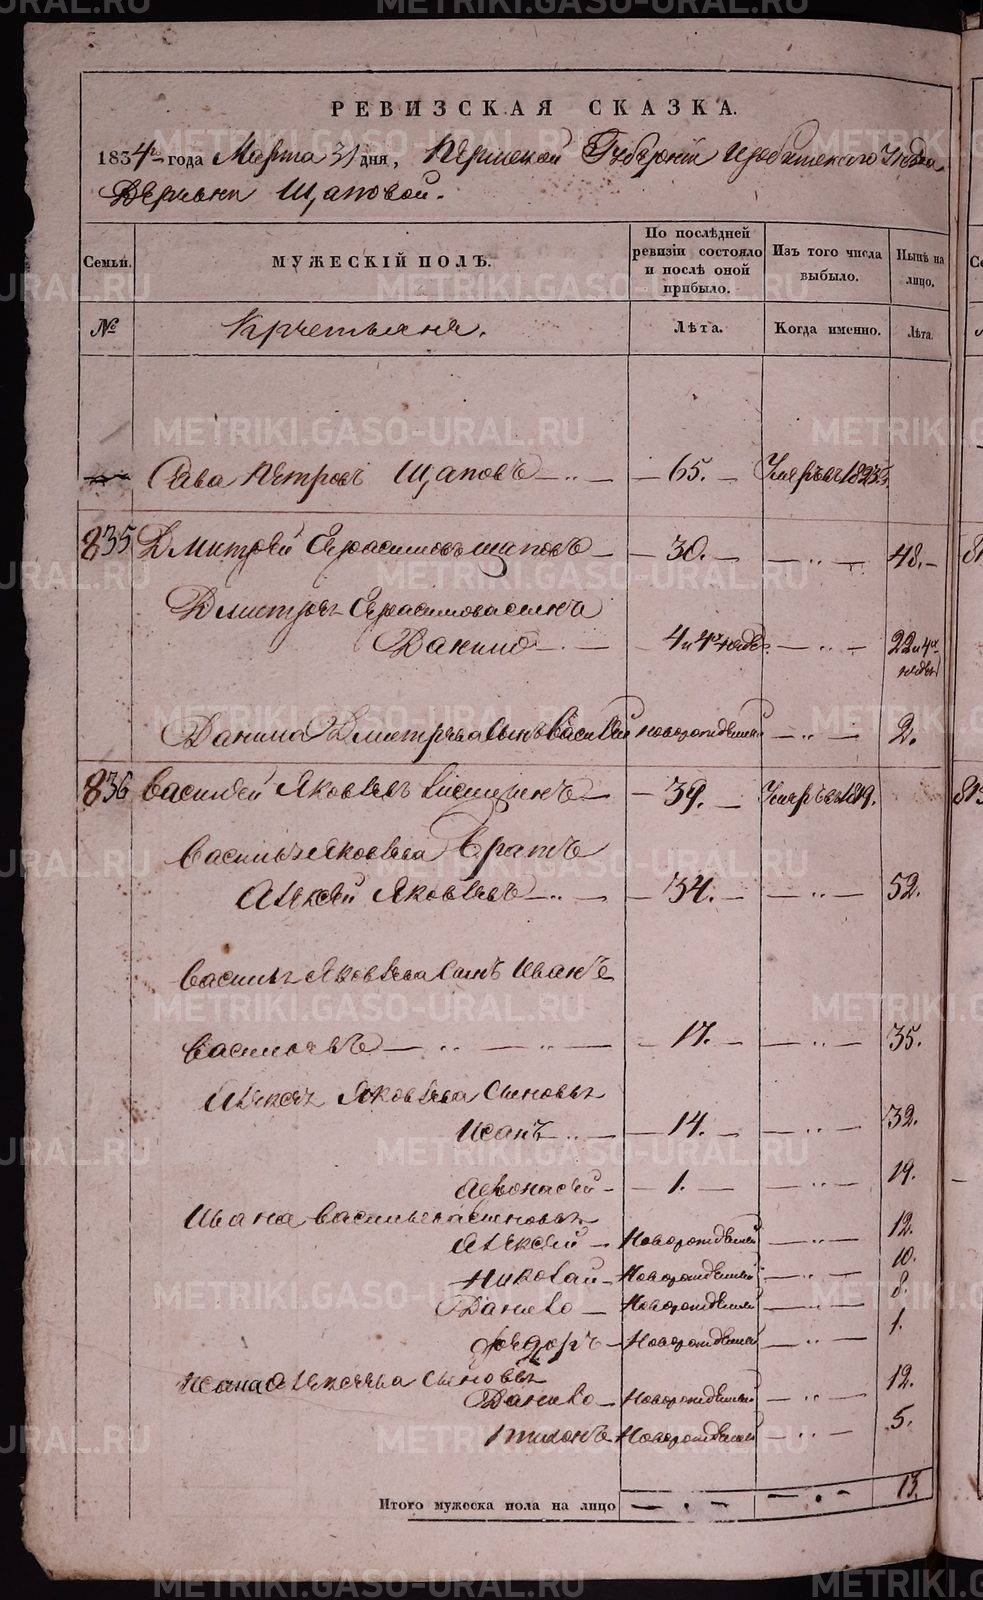 РЕВИЗСКАЯ СКАЗКА.
1834 года Марта 31 дня, Пермской Губернiи Ирбитского Уезда
Деревни Щаповой.
Семьи. МУЖЕСКIЙ ПОЛЪ. По послѣдней ревизiи состояло и послѣ оной прибыло. Изъ того числа выбыло. Нынѣ на лицо.
№ Крестьяне. Лѣта. Когда именно. Лѣта.
Сава Петровъ Щаповъ — 65. — Умре въ 1825.
835 Дмитрей Герасимовъ Щаповъ — 30. — 48.
Дмитрея Герасимова сынъ
Данило — 4 22
Данила Дмитрева сынъ Василей новорожденный 2.
836 Василей Яковлевъ — 39. — Умре въ 1819.
Василья Яковлева Братъ
Алексей Яковлевъ — 34. — 52.
Василья Яковлева Сынъ Иванъ
Васильевъ — 17. — 35.
Алексея Яковлева Сыновья
Исакъ — 14. — 32.
Афонасей — 1. — 19.
Ивана Васильева сыновья
Алексей — Новорожденный 12.
Николай — Новорожденный 10.
Данило — Новорожденный 8.
Федоръ — Новорожденный 1.
Исака Алексеева Сыновья
Данило — Новорожденный 12.
Тихонъ Новорожденный 5.
Итого мужеска пола на лицо 13.
METRIKI.GASO-URAL.RU